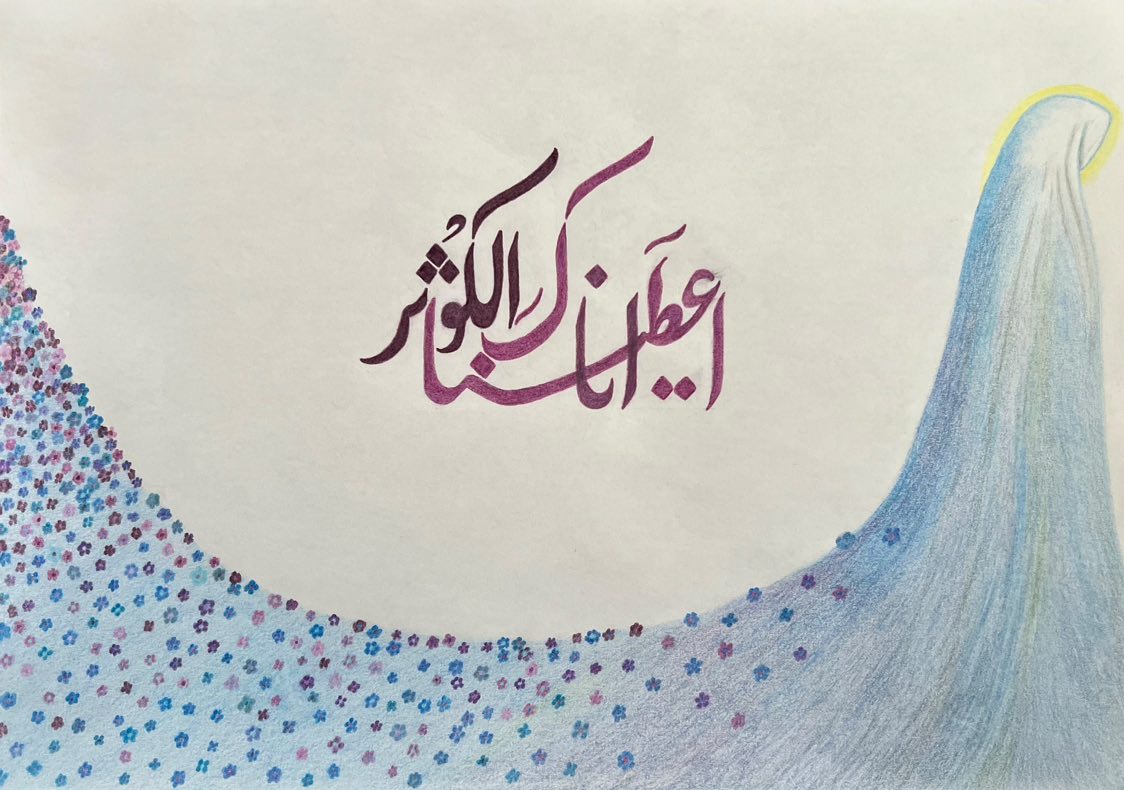 انا اعطیناک الکوثر